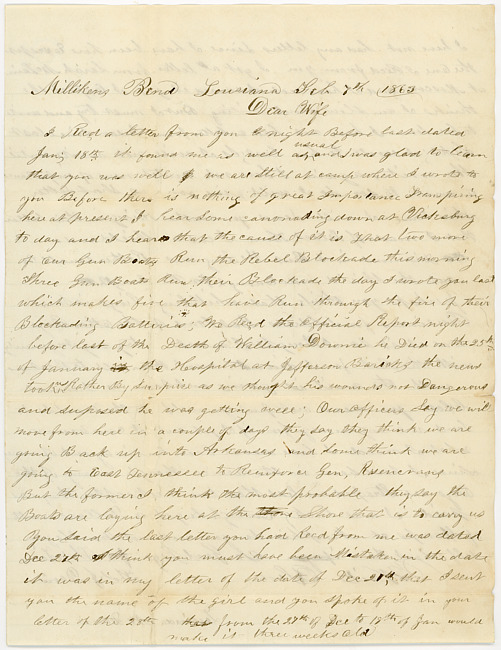 Millikens Bend Lousiana Feb 7th, 1863
Dear Wife
I Recd a letter from you to night Before last dated
Jan, 18th it found me as well as usual and I was glad to learn
that you was well we are still at camp where I wrote to
you Before there is nothing of great Importance Transpiring
here at present I hear some canonading down at Vicksburg
to day and I hear that the cause of it is that two more
of Our Gun Boats Run the Rebel Blockade this morning
Three Gun Boats Run their Blockade the day I wrote you last
which makes five that have Run through the fire of their
Blockading Batteries, We Recd the Official Report night
before last of the Death of William Downie he Died on the 25th
of January the Hospital at Jefferson Baricks the news
took us Rather By surprise as we thought his wounds not Dangerous
and suposed he was getting well; Our Officers Say we will
move from here in a couple of days they say they think we are
going Back up into Arkansas and some think we are
going to East Tennessee to Reinforce Gen, Rosencrans
But the former I think the most probable they say the
Boats are laying here at the Shore that is to carry us
You said the last letter you had Recd from me was dated
Dec 27th I think you must have been Mistaken in the date
it was in my letter of the date of Dec 27th, that I sent
you the name of the girl and you spoke of it in your
letter of the 25th from the 27th of Dec to 18th of Jan would
make it three weeks old